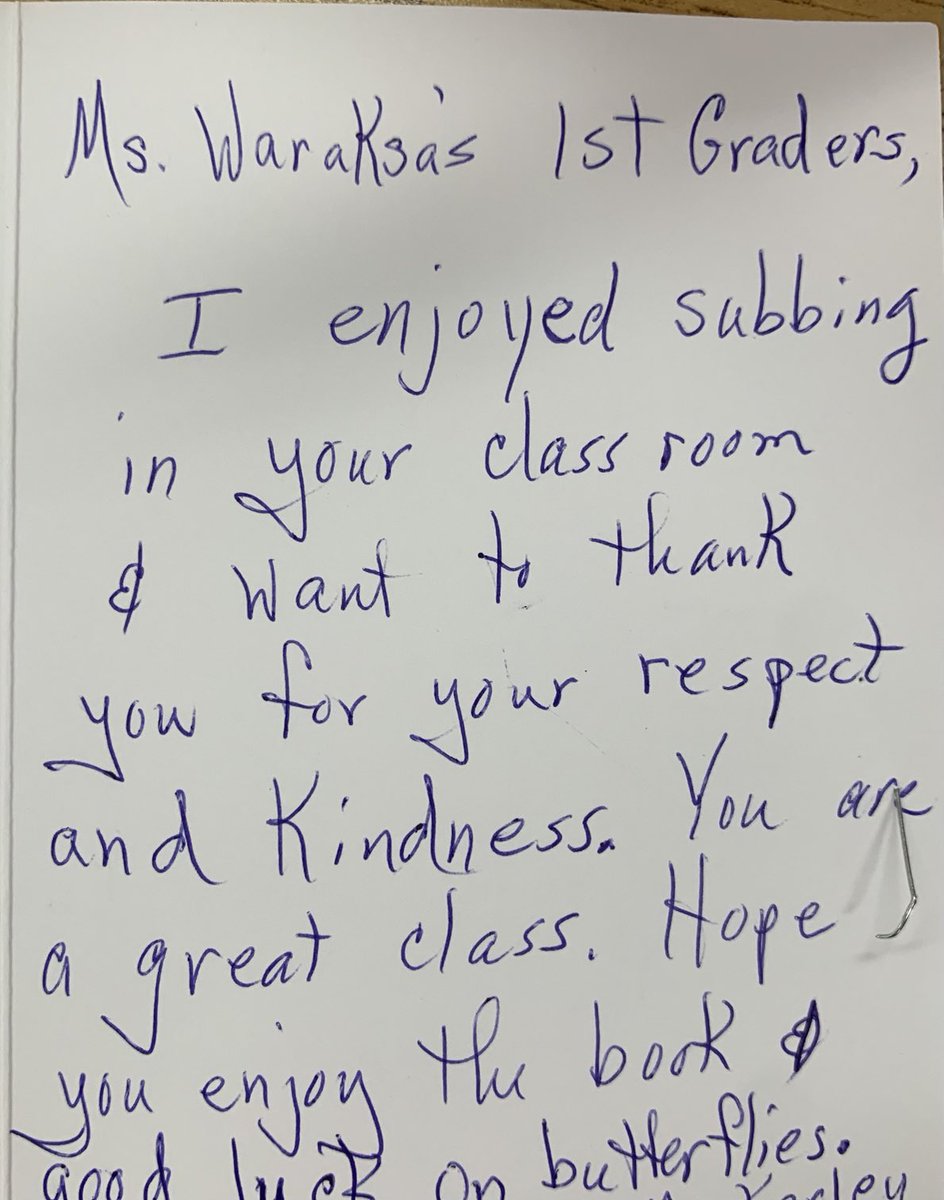 Ms. Waraksa's 1st Graders,
I enjoyed subbing
in your class room
& want to thank
you for your respect
and kindness. You are
a great class. Hope
you enjoy the book &
good luck on butterflies.